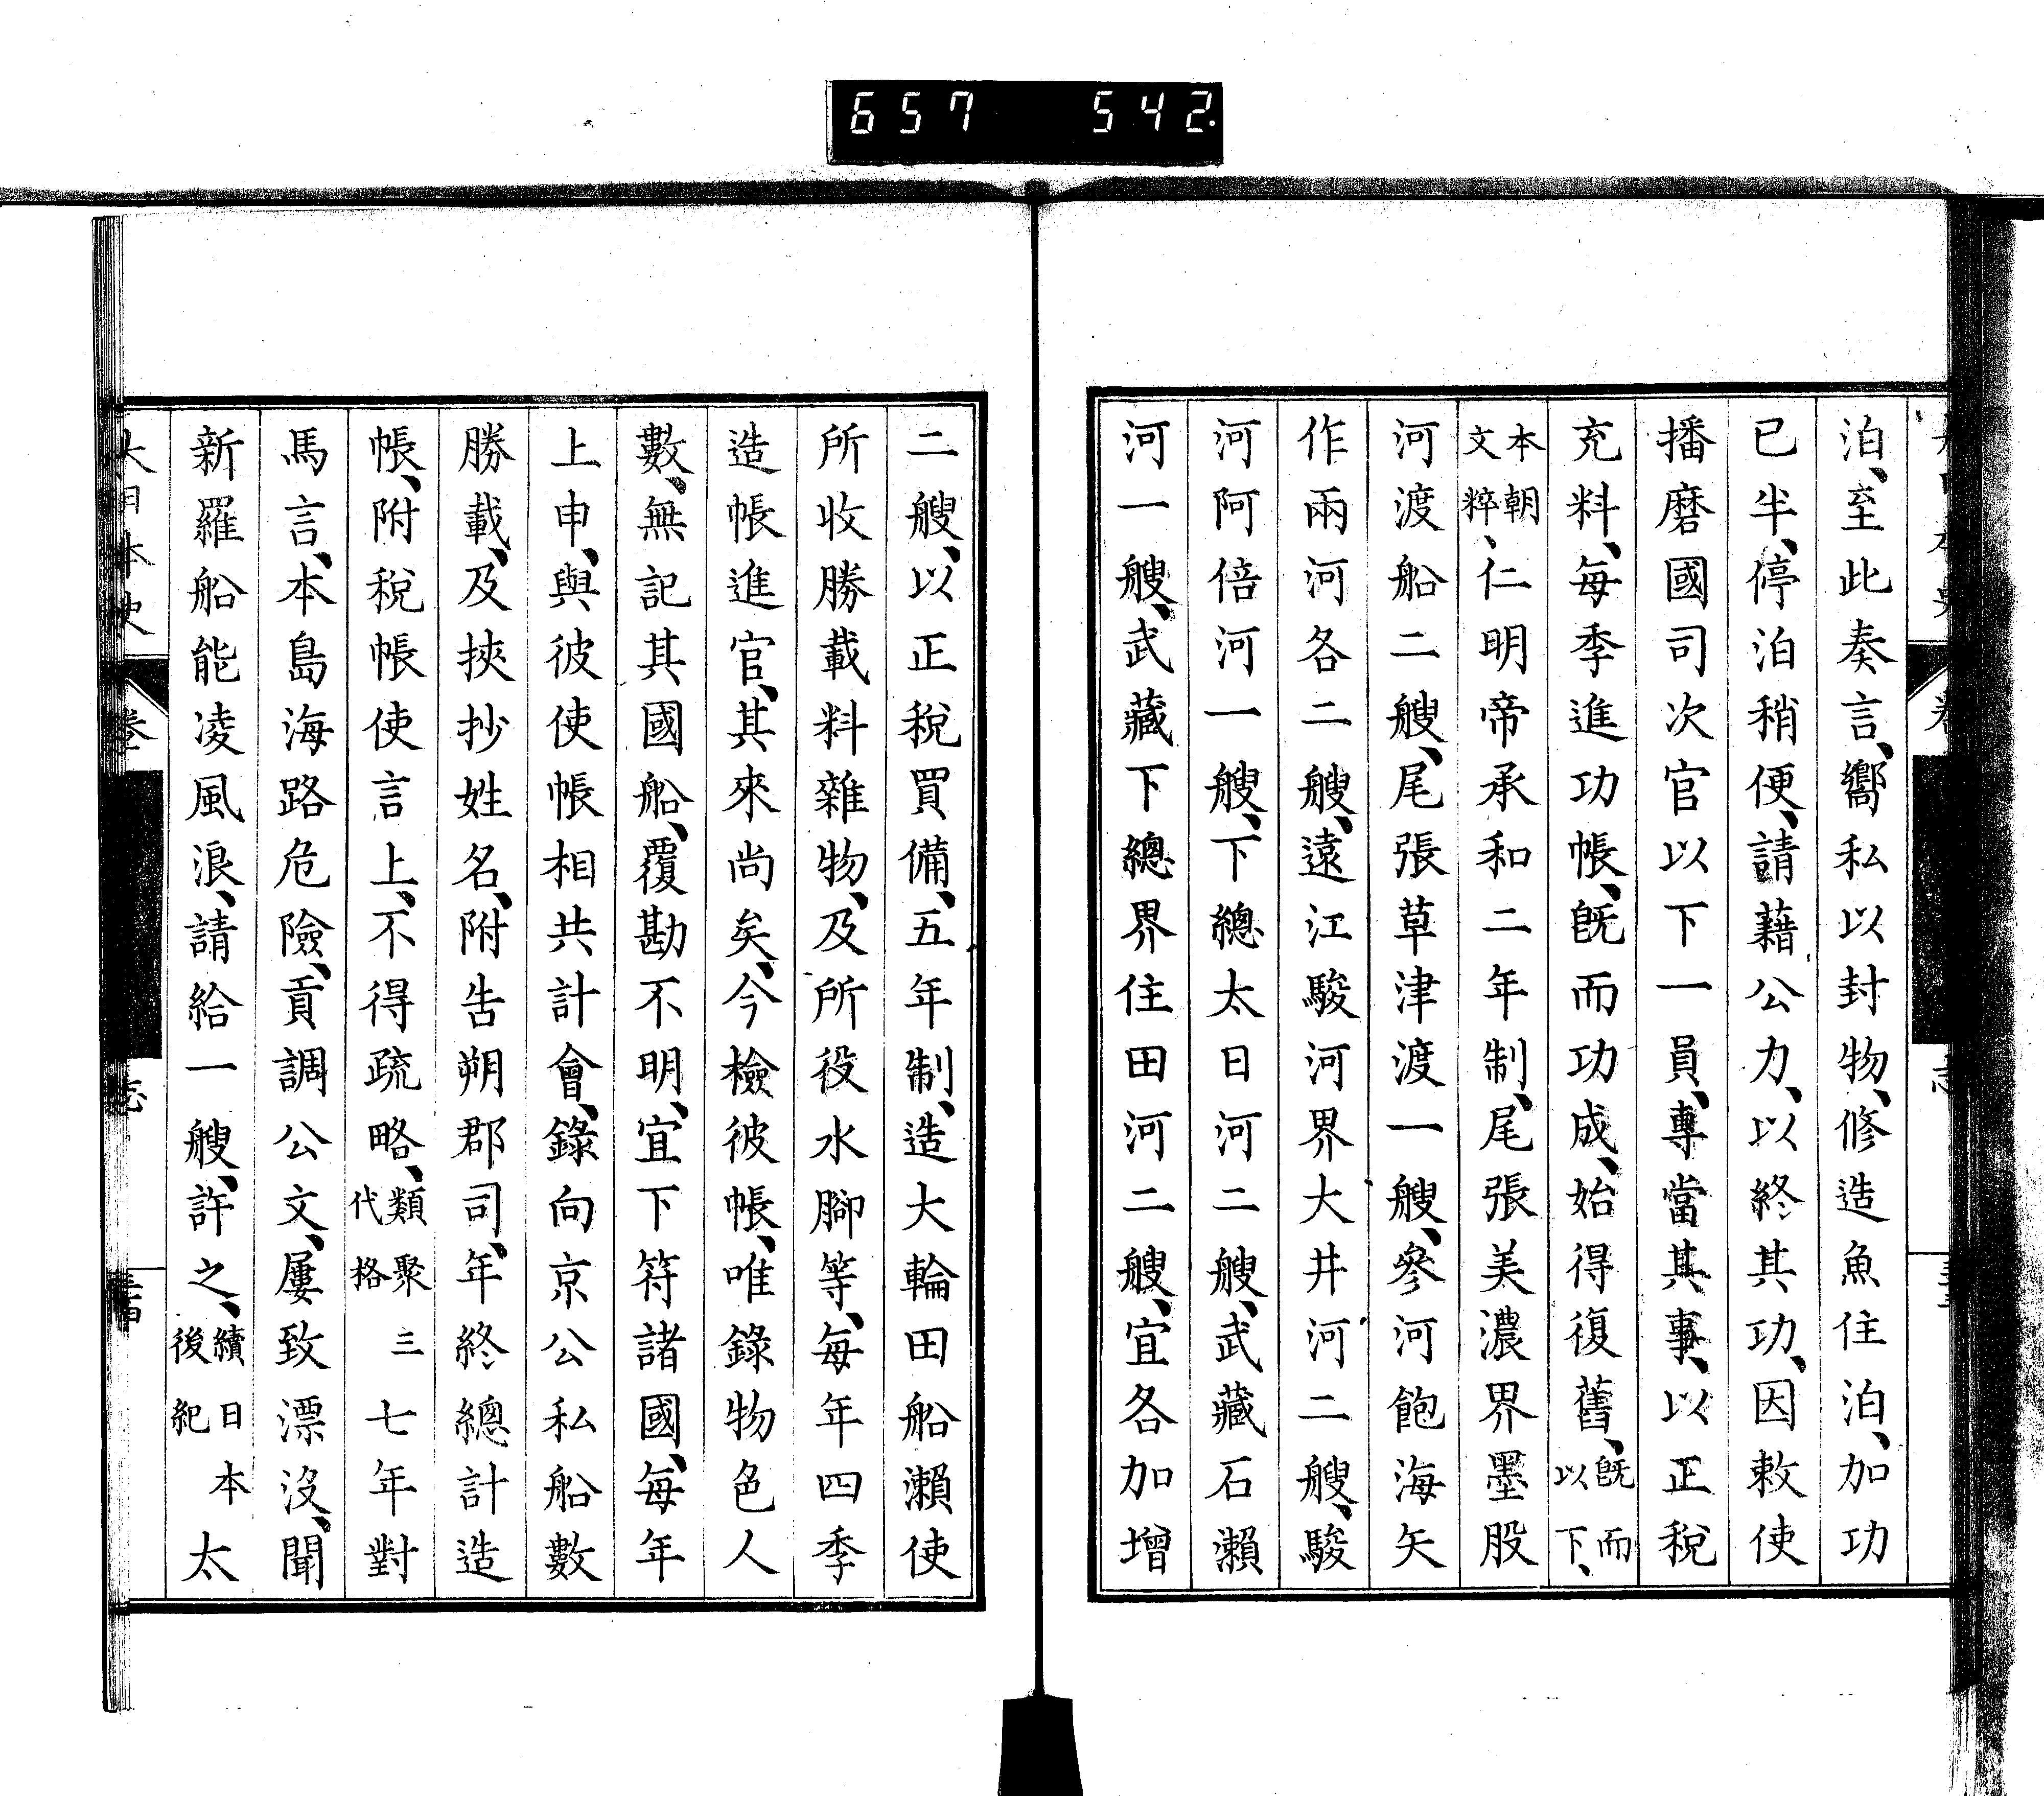 657 542.
泊、至此奏言、嚮私以封物、修造魚住泊、加功
已半、停泊稍便、請藉公力、以終其功、因敕使
播磨國司次官以下一員、專當其事、以正稅
充料、每季進功帳、既而功成、始得復舊、既而以下、
本朝文粹、仁明帝承和二年制、尾張美濃界墨股
河渡船二艘、尾張草津渡一艘、參河飽海矢
作兩河各二艘、遠江駿河界大井河二艘、駿
河阿倍河一艘、下總太日河二艘、武藏石瀨
河一艘、武藏下總界住田河二艘、宜各加增
二艘、以正稅買備、五年制、造大輪田船瀨使
所收勝載料雜物、及所役水腳等、每年四季
造帳進官、其來尚矣、今檢彼帳、唯錄物色人
數、無記其國船、覆勘不明、宜下符諸國、每年
上申、與彼使帳相共計會、錄向京公私船數
勝載、及挾抄姓名、附告朔郡司、年終總計造
帳、附稅帳使言上、不得疏略、類聚三代格七年對
馬言、本島海路危險、貢調公文、屢致漂沒、聞
新羅船能凌風浪、請給一艘、許之、續日本後紀太
大日本史 卷 志